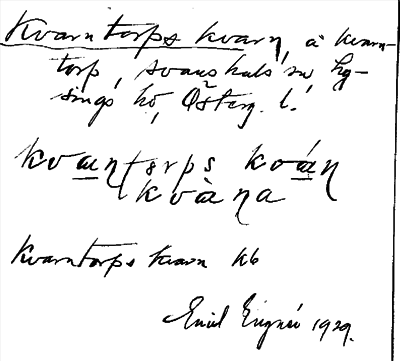 Kvarntorps kvarn, å kvarn-
torp, svanshals sn, Hy-
sings hd, Österg. l.
kvaɳtorps kváɳ
kvàɳa
Kvarntorps kvarn kb
Emil 1929.